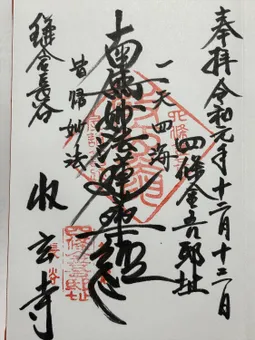 奉拝 令和元年十二月十二日
四條金吾邸址
一天四海
南無妙法蓮華経
皆帰妙法
鎌倉長谷
収玄寺